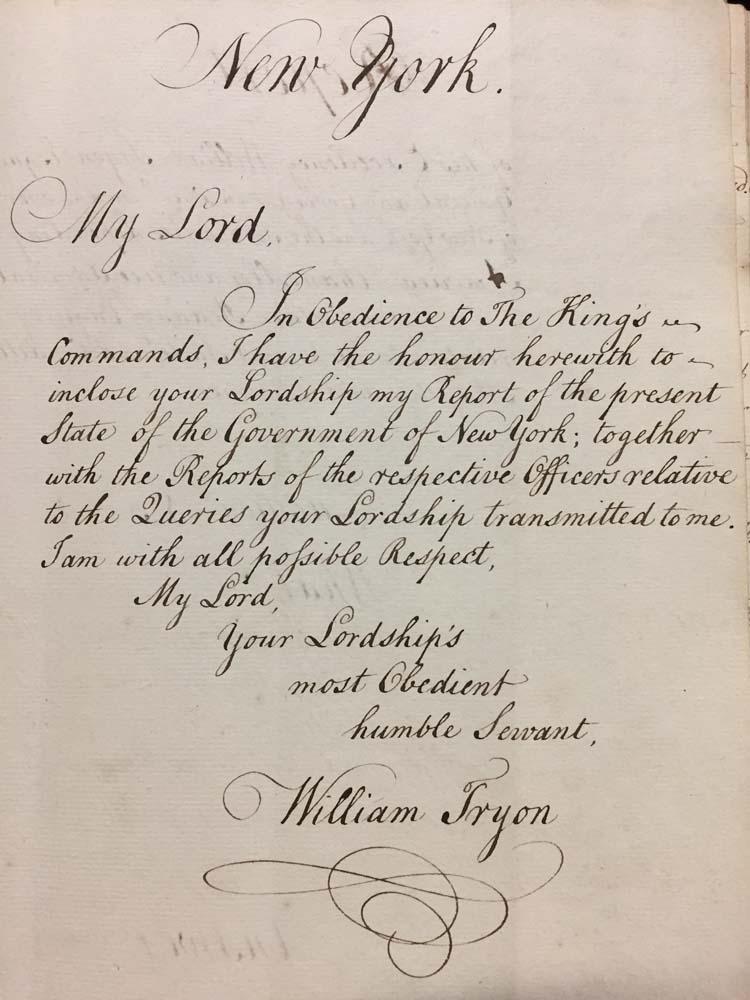 New York.
My Lord,
In Obedience to The King's
Commands, I have the honour herewith to
inclose your Lordship my Report of the present
State of the Government of New York; together
with the Reports of the respective Officers relative
to the Queries your Lordship transmitted to me.
I am with all poſsible Respect,
My Lord,
Your Lordship's
most Obedient
humble Servant,
William Tryon